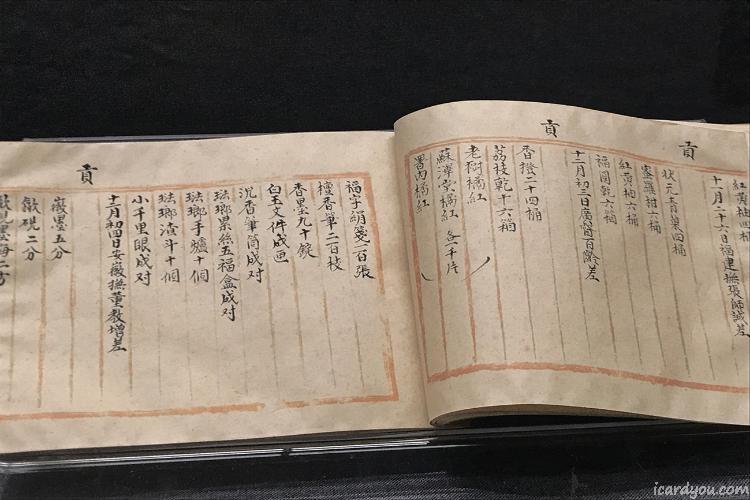 紅黃柚四桶
十一月二十六日福建撫張師誠差
貢
狀元青菓四桶
蜜羅柑六桶
紅黃柚六桶
福圓乾六箱
十二月初三日廣督百齡差
貢
香橙二十四桶
荔枝乾十六箱
老樹橘紅
蘇澤堂橘紅 各千片
署內橘紅
福字絹箋一百張
檀香筆二百枝
香墨九十錠
白玉文件成匣
沉香筆筒成对
琺瑯累絲五福盒成对
琺瑯手爐十個
琺瑯漬斗十個
小千里眼成对
十二月初四日安徽撫董教增差
貢
徽墨五分
歙硯二分
墨海二分
icardyou.com